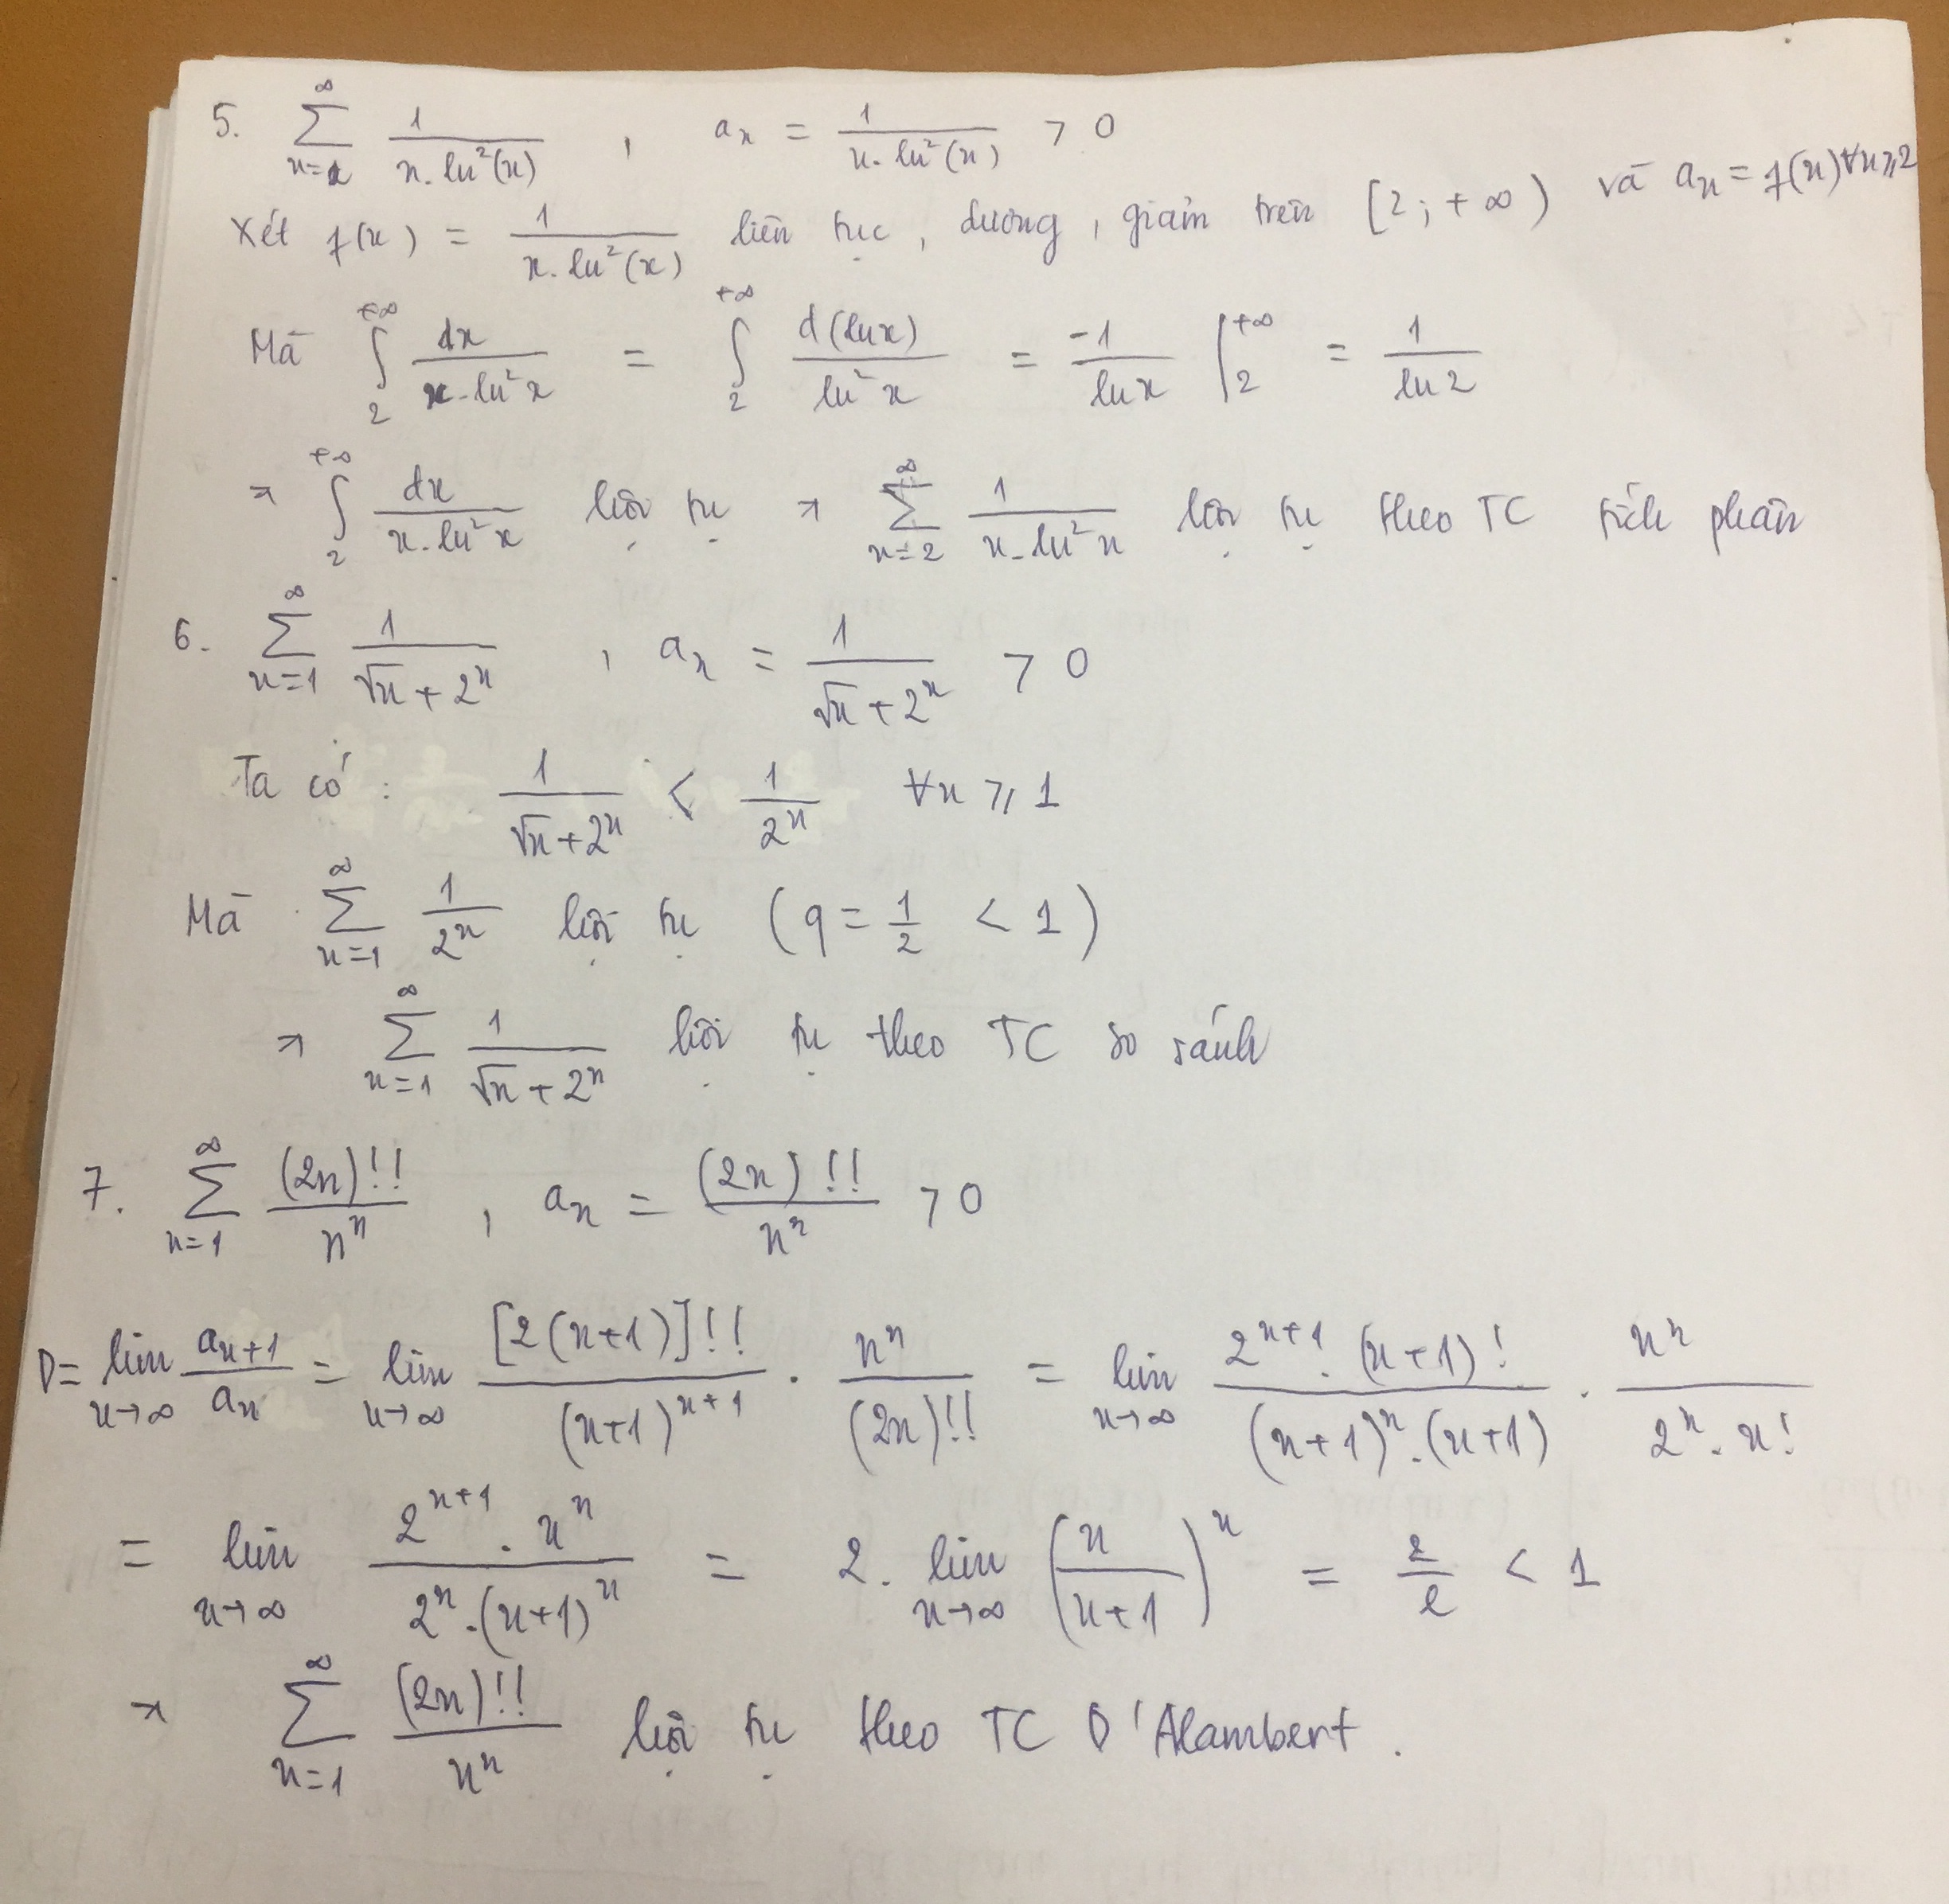 5. $\sum_{n=2}^{\infty} \frac{1}{n.\ln^2(n)}$ , $a_n = \frac{1}{n.\ln^2(n)} > 0$
Xét $f(x) = \frac{1}{x.\ln^2(x)}$ liên tục, dương, giảm trên $[2; +\infty)$ và $a_n = f(n) \forall n \geqslant 2$
Mà $\int_2^{+\infty} \frac{dx}{x.\ln^2 x} = \int_2^{+\infty} \frac{d(\ln x)}{\ln^2 x} = \frac{-1}{\ln x} \Big|_2^{+\infty} = \frac{1}{\ln 2}$
⇒ $\int_2^{+\infty} \frac{dx}{x.\ln^2 x}$ hội tụ ⇒ $\sum_{n=2}^{\infty} \frac{1}{n.\ln^2 n}$ hội tụ theo TC tích phân
6. $\sum_{n=1}^{\infty} \frac{1}{\sqrt{n} + 2^n}$ , $a_n = \frac{1}{\sqrt{n} + 2^n} > 0$
Ta có: $\frac{1}{\sqrt{n} + 2^n} < \frac{1}{2^n}$ $\forall n \geqslant 1$
Mà $\sum_{n=1}^{\infty} \frac{1}{2^n}$ hội tụ $(q = \frac{1}{2} < 1)$
⇒ $\sum_{n=1}^{\infty} \frac{1}{\sqrt{n} + 2^n}$ hội tụ theo TC so sánh
7. $\sum_{n=1}^{\infty} \frac{(2n)!!}{n^n}$ , $a_n = \frac{(2n)!!}{n^n} > 0$
$D = \lim_{n \to \infty} \frac{a_{n+1}}{a_n} = \lim_{n \to \infty} \frac{[2(n+1)]!!}{(n+1)^{n+1}} \cdot \frac{n^n}{(2n)!!} = \lim_{n \to \infty} \frac{2^{n+1}.(n+1)!}{(n+1)^n.(n+1)} \cdot \frac{n^n}{2^n.n!}$
$= \lim_{n \to \infty} \frac{2^{n+1}.n^n}{2^n.(n+1)^n} = 2.\lim_{n \to \infty} \left(\frac{n}{n+1}\right)^n = \frac{2}{e} < 1$
⇒ $\sum_{n=1}^{\infty} \frac{(2n)!!}{n^n}$ hội tụ theo TC D'Alambert.